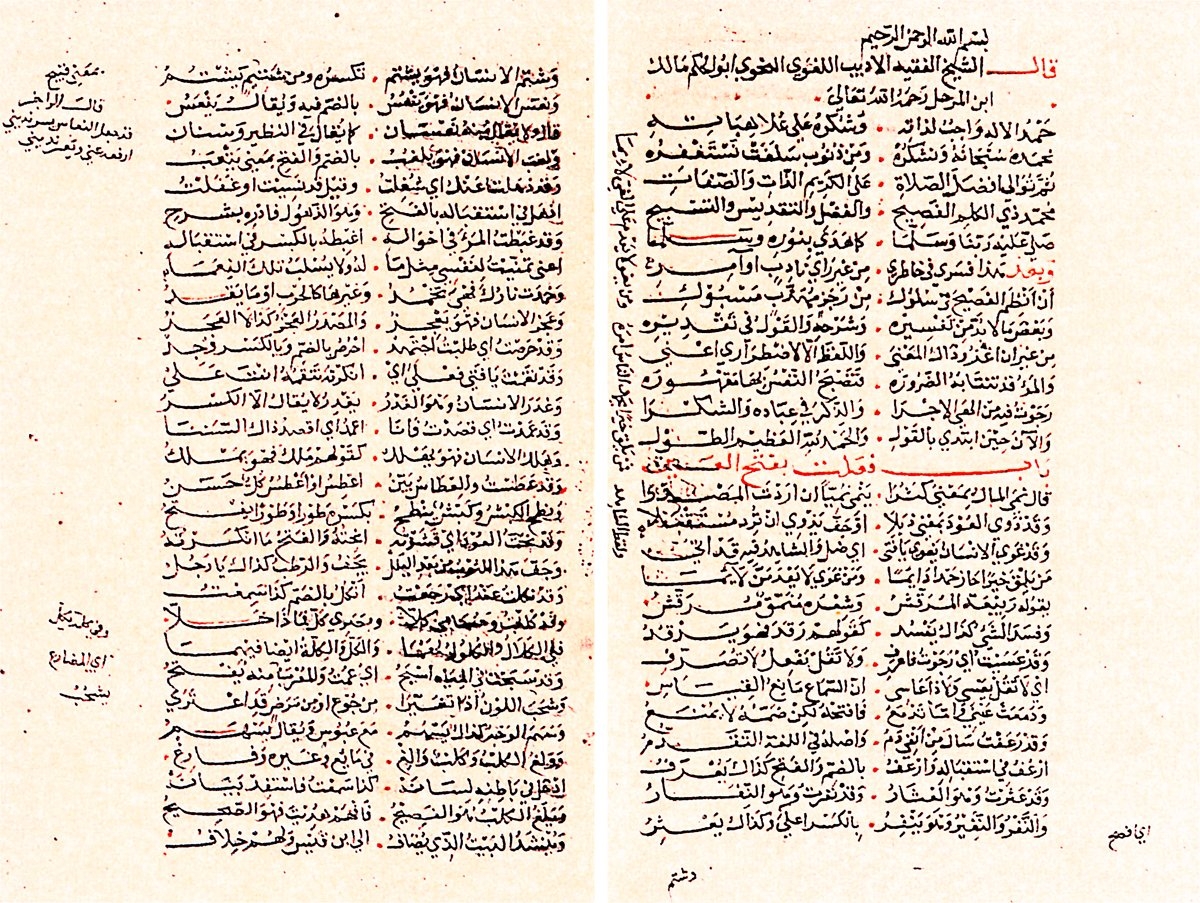 بسم الله الرحمن الرحيم
قال الشيخ الفقيه الاديب اللغوي النحوي ابو الحكم مالك
ابن المرحل رحمه الله تعالى
حمد الاله واجب لذاته وشكره على علا هباته
نحمده سبحانه ونشكره ومن ذنوب سلفت نستغفره
ثم نوالي افضل الصلاة على الكريم الذات والصفات
محمد ذي الكلم الفصيح والفضل والتقديس والتسبيح
صلى عليه ربنا وسلما كما هدى بنوره وسلما
وبعد هذا فسرى في خاطري من غير راي نادب او آمر
ان انظم الفصيح في سلوك من رجز مهذب مسبوك
وبعض ما لابد من تفسيره وشرحه والقول في تقديره
من غير ان اغدر ذاك المعنى واللفظ الا لاضطرار عنا
والمرء قد تنتابه الضروره فتصبح النفس بها مقهوره
رجوت فيه من الهي الاجرا والذكر في عباده والشكرا
والآن حين ابتدي بالقول والحمد لله العظيم الطول
باب فعلت بفتح العين
قال نمى المال بمعنى كثرا ينمي نميا ان اردت المصدرا
وقد ذوى العود بمعنى ذبلا او جف يذوي ان ترد مستقبلا
وقد غوى الانسان يغوي يا فتى اي ضل والشاهد فيه قد اتى
من يلق خيرا حاز حمدا دايما ومن غوى لا يعدمن لايما
بقوله ربيعة المرقش وشعره منمق مرقش
وفسد الشي كذاك يفسد كقولهم رقد فهو يرقد
وقد عسيت اي رجوت فاعرف ولا تقل يفعل لا تصرف
اي لا تقل يعسي ولا ذا عاسي ان السماع مانع القياس
ودمعت عيني فاما تدمع فافتحه لكن ضمه لا يمنع
وقد رعفت سال من انفي دم واصله في اللغة التقدم
ارعف في استقباله وارعف بالضم والفتح كذاك يعرف
وقد عثرت وهو العثار وقد نفرت وهو النفار
والنفر والنفير وهو ينفر بالكسر اعلى وكذاك يعثر
اي افصح
وشتم
وشتم الانسان فهو يشتم تكسره ومن شفتيهم يشتم
ونعس الانسان فهو ينعس بالضم فيه ويقال ينعس
قال ولا يقال منه نعسان كما يقال في النظير وسنان
ولغب الانسان فهو يلغب بالضم والفتح بمعنى يتعب
وقد ذهلت عنك اي شغلت وقيل قد نسيت او غفلت
اذهل في استقباله بالفتح وهو الذهول فادره بشرح
وقد غبطت المرء في احواله اغبطه بالكسر في استقباله
اعني تمنيت لنفسي مثل ما له ولا يسلب تلك النعما
وخمدت نارك فهي تخمد وغيرها كالحرب او ما يقد
وعجز الانسان فهو يعجز والمصدر العجز كذا المعجز
وقد حرصت اي طلبت اجتهد احرص بالضم وبالكسر وجد
وقد نقمت يا فتى فعلي اي انكرته تنقمه انت علي
وغدر الانسان وهو الغدر يغدر لا يقال الا الكسر
وقد عمدت اي قصدت وانا اعمد اي اقصد ذاك السننا
وهلك الانسان فهو يهلك كقولهم ملك فهو يملك
وقد عطست والعطاس بين اعطس او اعطس كل حسن
ونطح الكبش وكبش ينطح بكسره طورا وطورا يفتح
وقد نحت العود اي قشرته انحته والفتح ما انكرته
وجف هذا الثوب بعد البلل يجف والرطب كذاك يا رجل
وقد نكلت عنه اي رجعت انكل بالضم كذا سمعت
وقد كللت وحسامي كلا وبصري كل فماذا خلا
في الكلال والكلول والكل والكلة ايضا فيهما
وقد سبحت في المياه اسبح اي عمت والمغرب منه يفتح
وشحب اللون اذا تغيرا من جوع او من مرض قد اعترى
وسهم الوجه كذاك يسهم مع عبوس ويقال يسهم
وولغ الكلب وكلب والغ في مائع وغيره وفارغ
ادخل في باطنه لسانه كذا سمعت فاستفد بيانه
ويلغ الكلب هو الفصيح فافهم هديت فهو الصحيح
وينشد البيت الذي يضاف الى ابن قيس ولهم خلاف
بمعنى قبيح
قال الراجز
وفي يكل تكل
اي المضارع
يشحب